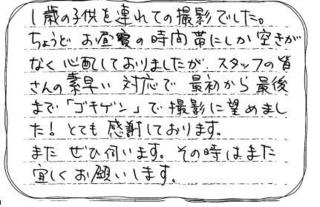 1歳の子供を連れての撮影でした。
ちょうど お昼寝の時間帯にしか空きが
なく心配しておりましたが、スタッフの皆
さんの素早い 対応で 最初から 最後
まで「ゴキゲン」で撮影に望めまし
た! とても 感謝しております。
また ぜひ伺います。その時はまた
宜しくお願いします。